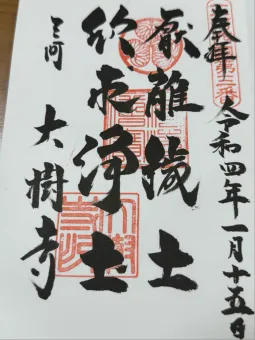 奉拝
第十二番
令和四年一月十五日
厭離穢土
欣求浄土
三河
大樹寺